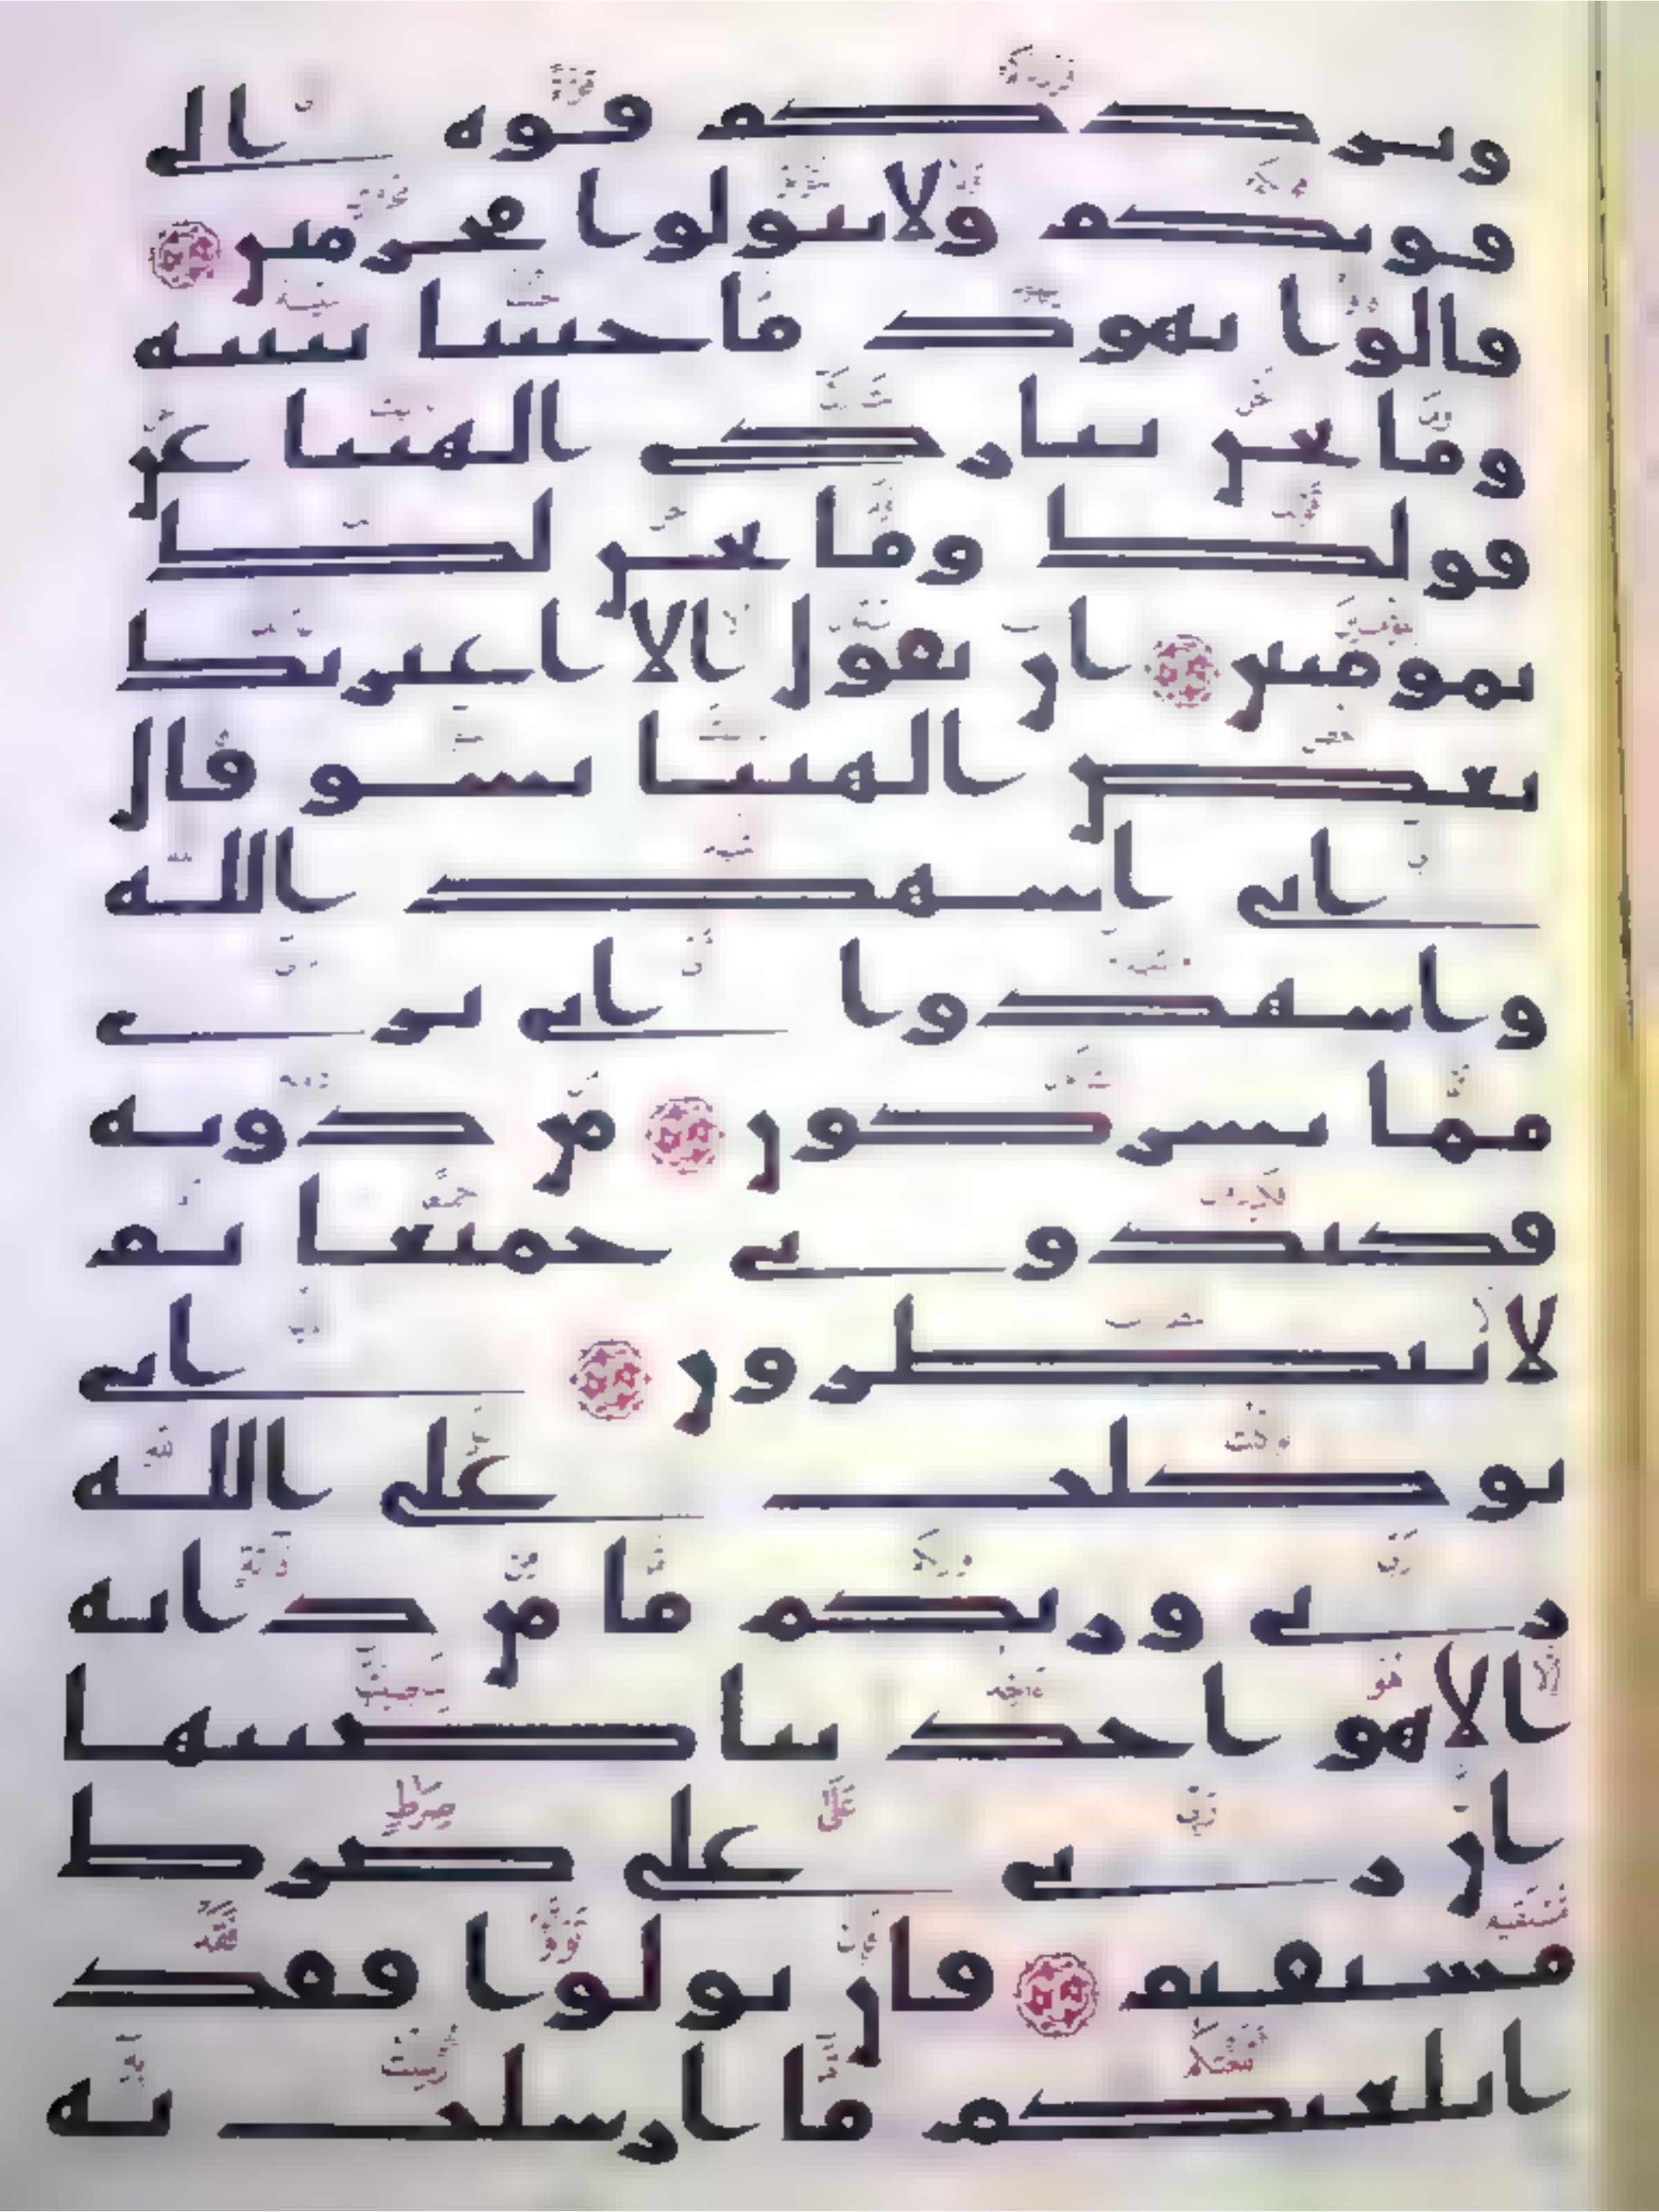 ويزدكم قوة الى
قوتكم ولا تتولوا مجرمين
قالوا يهود ما جئتنا ببينة
وما نحن بتاركي الهتنا عن
قولك وما نحن لك
بمومنين ان نقول الا اعتريك
بعض الهتنا بسو قال
اني اشهد الله
واشهدوا اني بري
مما تشركون من دونه
فكيدوني جميعا ثم
لا تنظرون اني
توكلت على الله
ربي وربكم ما من دابة
الا هو اخذ بناصيتها
ان ربي على صرط
مستقيم فان تولوا فقد
ابلغتكم ما ارسلت به